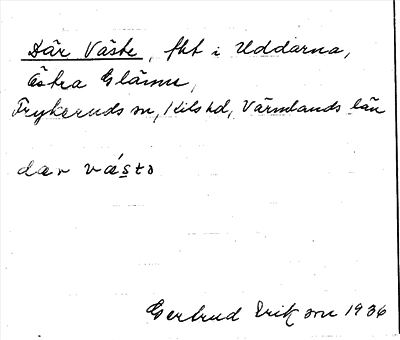 Där Väste, fkt i Uddarna,
Östra Glänne,
Frykeruds sn, Kils hd, Värmlands län
dær væ´stə
Gertrud Erikson 1936